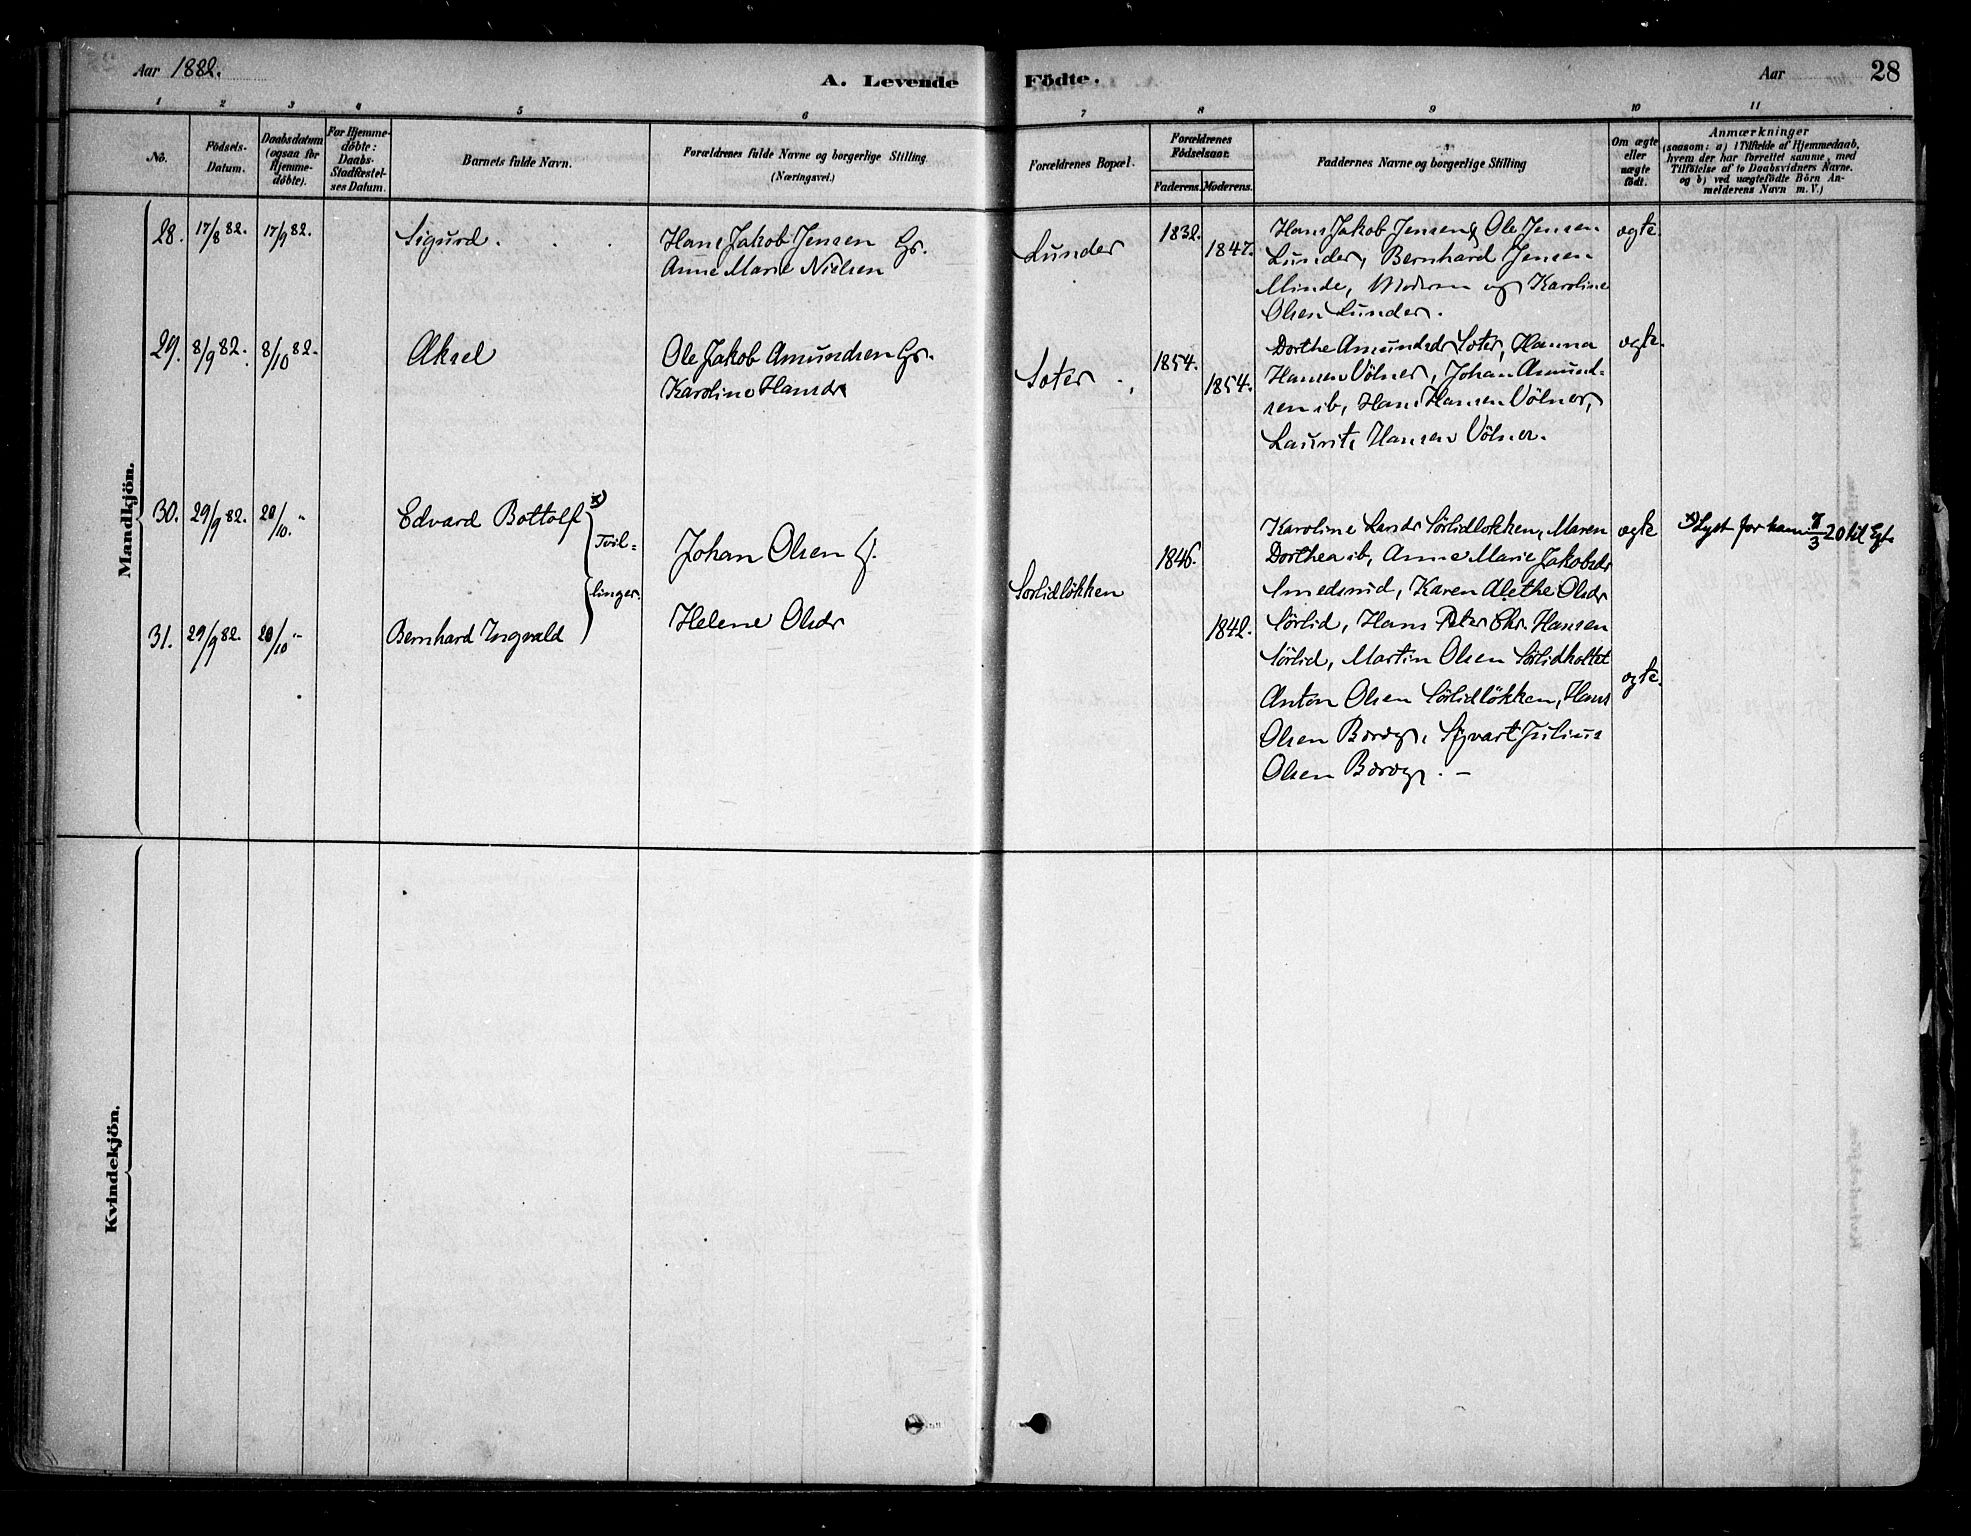 Aar 1882.
A. Levende Födte.
Aar
28
1 2 3 4 5 6 7 8 9 10 11
No.
Födsels-
Datum.
Daabsdatum
(ogsaa for
Hjemme-
döbte).
For Hjemme-
döbte:
Daabs-
Stadfæstel-
ses Datum.
Barnets fulde Navn.
Forældrenes fulde Navne og borgerlige Stilling
(Næringsvei.)
Forældrenes Bopæl.
Forældrenes
Födselsaar.
Faderens. Moderens.
Faddernes Navne og borgerlige Stilling
Om ægte
eller
uægte
födt.
Anmærkninger
(saasom: a) i Tilfælde af Hjemmedaab,
hvem der har forrettet samme, med
Tilföielse af to Daabsvidners Navne.
og b) ved uægtefödte Börn An-
melderens Navn m. V.)
Mandkjön.
28. 17/8 82. 17/9 82. Sigurd.
Hans Jakob Jensen Gr.
Anne Marie Nielsen
Lunder
1832.
1847.
Hans Jakob Jensen & Ole Jensen
Lunder, Bernhard Jensen
Minde, Moderen og Karoline
Olsen Lunder.
ægte.
29. 8/9 82. 8/10 82. Aksel
Ole Jakob Amundsen Gr.
Karoline Hansdr
Soter
1854.
1854.
Dorthe Amundsdr Soter, Hanna
Hansen Völner, Johan Amund-
sen ib, Hans Hansen Völner,
Laurits Hansen Völner.
ægte.
30. 29/9 82. 20/10 " Edvard Bottolf x)
Tvil-
linger.
31. 29/9 82. 20/10 " Bernhard Ingvald
Johan Olsen
Helene Olsdr
Sorlidlökken
1846.
1842.
Karoline Larsdr Sörlidlökken, Maren
Dorthea ib, Anne Marie Jakobsdr
Smedsrud, Karen Alethe Olsdr
Sörlid, Hans Peter Chr. Hansen
Sörlid, Martin Olsen Sörlidholtet
Anton Olsen Sörlidlökken, Hans
Olsen, Sigvart Julius
Olsen
ægte
ægte.
x) Lyst for ham 7/3 20 til Egt.
Kvindekjön.